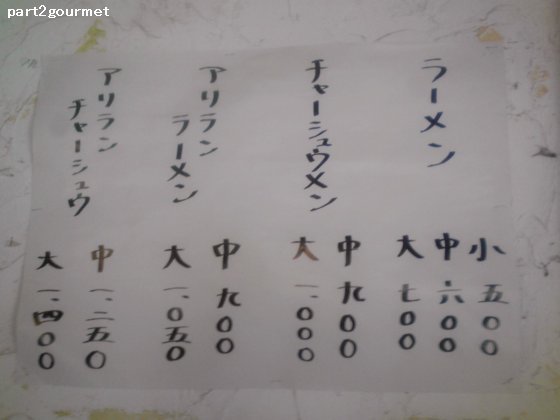 part2gourmet
ラーメン
小 五〇〇
中 六〇〇
大 七〇〇
チャーシュウメン
中 九〇〇
大 一、〇〇〇
アリラン
ラーメン
中 九〇〇
大 一、〇五〇
アリラン
チャーシュウ
中 一、二五〇
大 一、四〇〇